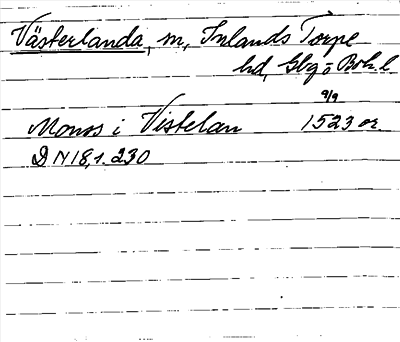 Västerlanda, sn, Inlands Torpe
hd, Gbg o Boh. l
9/9
Monos i Vistelan 1523 or.
DN 18, 1. 230